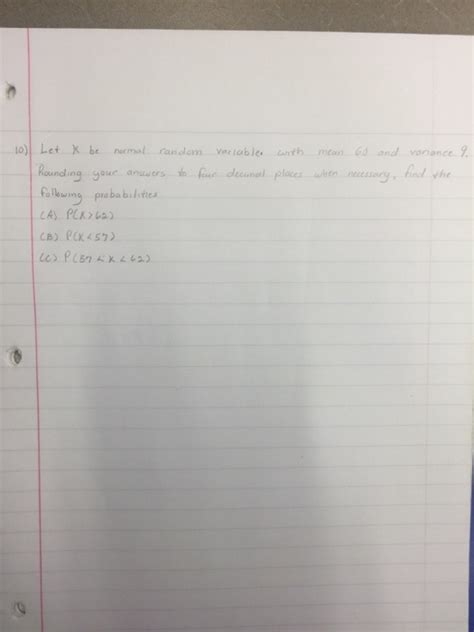 10) Let X be normal random variable with mean 60 and variance 9.
Rounding your answers to four decimal places when necessary, find the
following probabilities
(A) P(X>62)
(B) P(X<57)
(C) P(57<X<62)